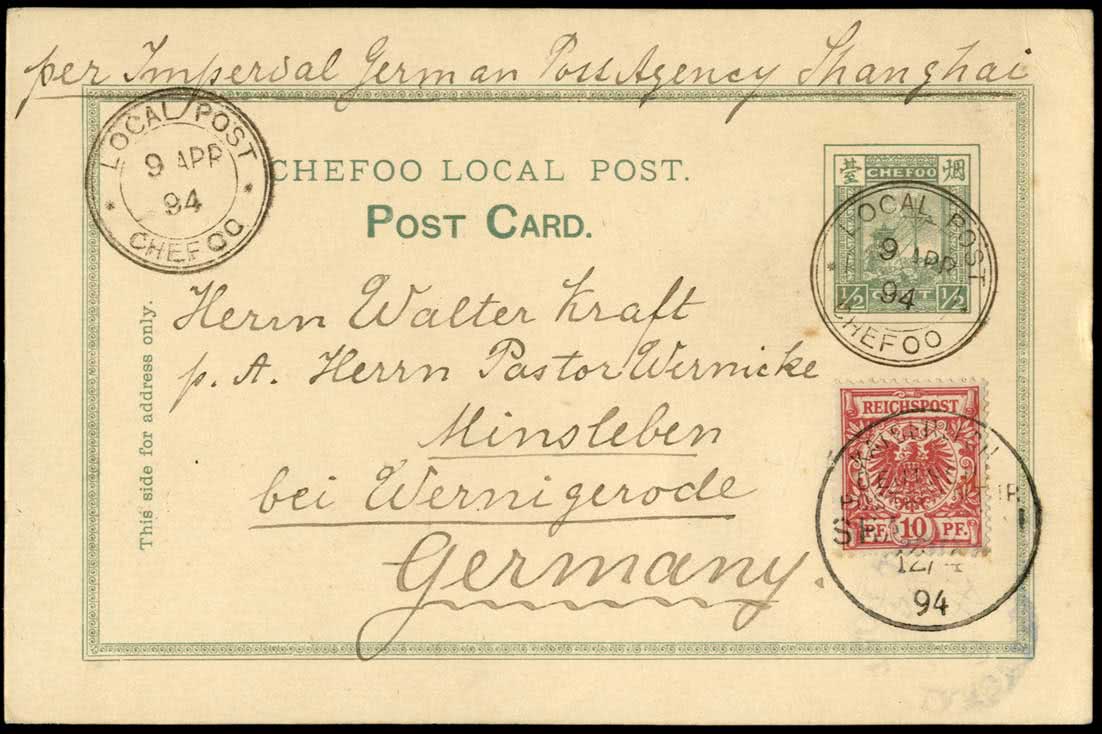 per Imperial German Post Agency Shanghai
LOCAL POST
9 APR
94
CHEFOO
CHEFOO LOCAL POST.
POST CARD.
臺 烟
CHEFOO
1/2 CENT 1/2
LOCAL POST
9 APR
94
CHEFOO
This side for address only.
Herrn Walter Kraft
p. A. Herrn Pastor Wernicke
Minsleben
bei Wernigerode
Germany.
REICHSPOST
PF. 10 PF.
12/4
94